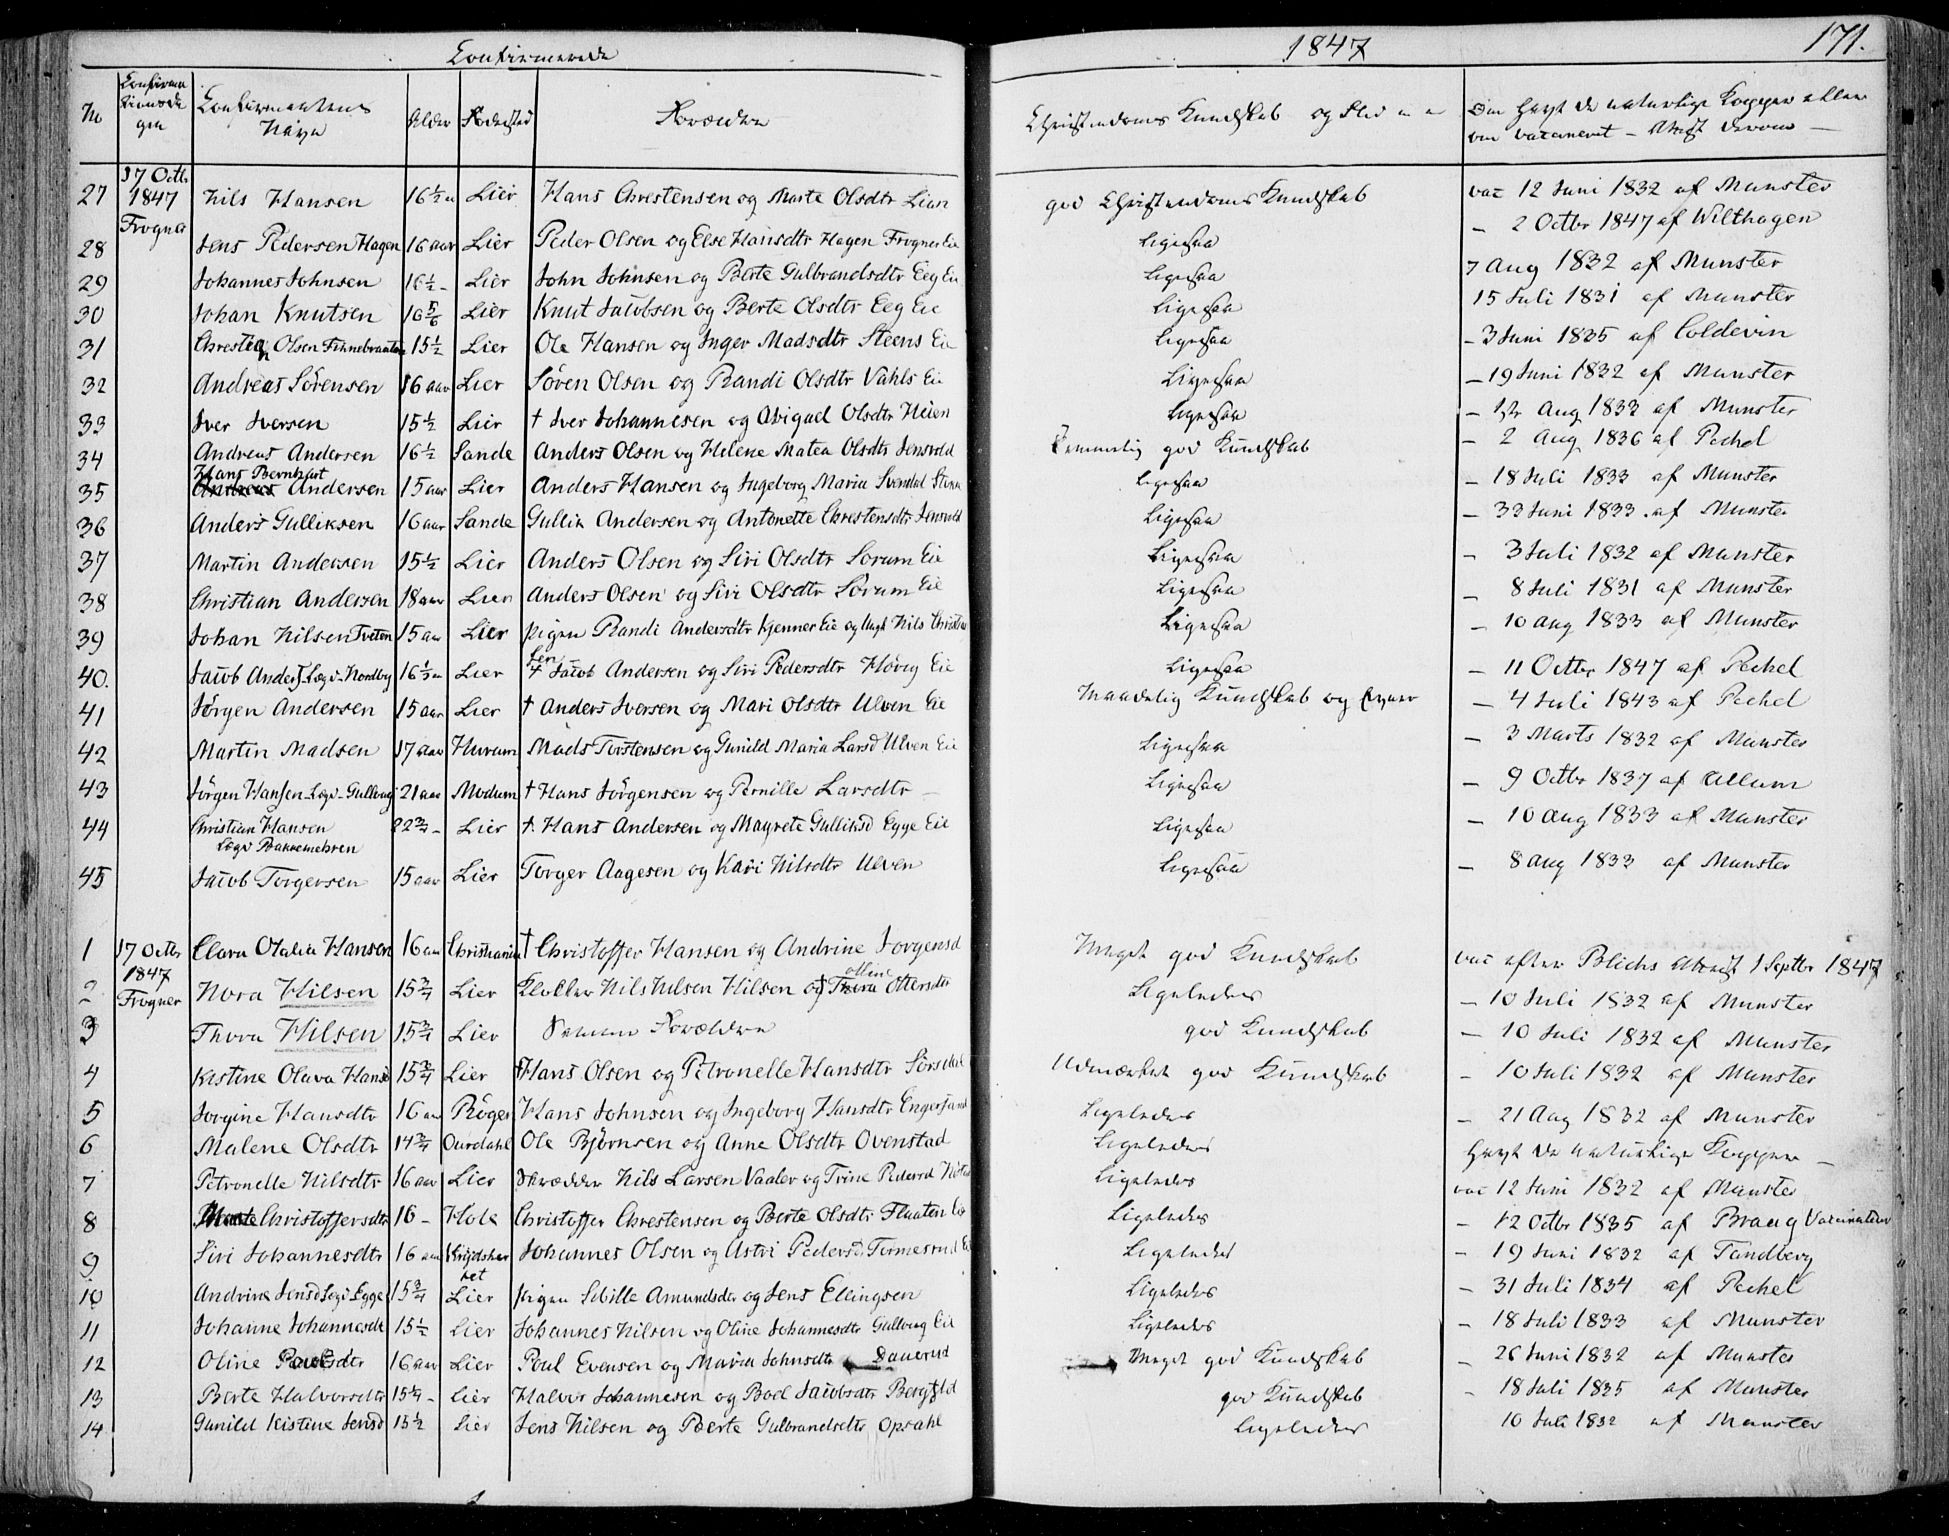 Confirmerede 1847 171.
No Confirmationsdagen Confirmantens Navn Alder Fødested Forældre Christendoms Kundskab og Flid Om havt de naturlige Kopper eller er vaccineret – Attest derom –
17 Octbr
27 1847 Nils Hansen 16½ Lier Hans Chrestensen og Marte Olsdtr Lian god Christendoms Kundskab vac 12 Juni 1832 af Munster
Frogner
28 Jens Pedersen Hagen 16 aar Lier Peder Olsen og Else Hansdtr Hagen Frogner Eie Ligesaa – 2 Octbr 1847 af Wilthagen
29 Johannes Johnsen 16½ – Lier John Johnsen og Berte Gulbrandsdtr Eeg Eie Ligesaa 7 Aug 1832 af Munster
30 Johan Knutsen 16 5/6 Lier Knut Jacobsen og Berte Olsdtr Eeg Eie Ligesaa 15 Juli 1831 af Munster
31 Olsen Finnebraaten 15½ Lier Ole Hansen og Inger Madsdtr Steens Eie Ligesaa – 3 Juni 1835 af Coldevin
32 Andreas Sörensen 16 aar Lier Sören Olsen og Randi Olsdtr Vahls Eie Ligesaa – 19 Juni 1832 af Munster
33 Iver Iversen 15½ Lier † Iver Johannesen og Abigael Olsdtr Heien Ligesaa – Aug 1833 af Munster
34 Andreas Andersen 16½ Sande Anders Olsen og Helene Matea Olsdtr Jensvold Temmelig god Kundskab – 2 Aug 1836 af Pechel
Hans Bernhart
35 Andersen 15 aar Lier Anders Hansen og Ingeborg Maria Svendsd Ligesaa – 18 Juli 1833 af Munster
36 Anders Gulliksen 16 aar Sande Gullik Andersen og Antonette Chrestensdtr Jensvold Ligesaa – Juni 1833 af Munster
37 Martin Andersen 15½ Lier Anders Olsen og Siri Olsdtr Sorum Eie Ligesaa – 3 Juli 1832 af Munster
38 Christian Andersen 18 aar Lier Anders Olsen og Siri Olsdtr Sorum Eie Ligesaa – 8 Juli 1831 af Munster
39 Johan Nilsen Tveten 15 aar Lier pigen Randi Andersdtr Kjenner Eie og Ungk Nils Ligesaa – 10 Aug 1833 af Munster
40. Jacob Anders. Logi-Nordby 16½ Lier Jacob Andersen og Siri Pedersdtr Hövig Eie Ligesaa – 11 Octbr 1847 af Pechel
41 Jörgen Andersen 15 aar Lier † Anders Iversen og Mari Olsdtr Ulven Eie Maadelig Kundskab og – 4 Juli 1843 af Pechel
42 Martin Madsen 17 aar Hurum Mads Torstensen og Gunild Maria Larsd Ulven Eie Ligesaa – 3 Marts 1832 af Munster
43 Jörgen Hansen Logi-Gullaug 21 aar Modum † Hans Jörgensen og Pernille Larsdtr – Ligesaa – 9 Octbr 1837 af Allum
44 Christian Hansen 22¾ – Lier † Hans Andersen og Magrete Gulliksd Egge Eie Ligesaa – 10 Aug 1833 af Munster
Logi Bakkemehren
45 Jacob Torgersen 15 aar Lier Torger Aagesen og Kari Nilsdtr Ulven Ligesaa – 8 Aug 1833 af Munster
1 17 Octbr Clara Otalia Hansen 16 aar Christiania † Christoffer Hansen og Andrine Jorgensd Meget god Kundskab vac efter Blichs Attest 1 Septbr 1847
1847
2 Frogner Nora Nilsen 15¾ Lier Klokker Nils Nilsen Nilsen og Ottersdtr Ligeledes – 10 Juli 1832 af Munster
3 Thora Nilsen 15¾ Lier Samme Forældre god Kundskab – 10 Juli 1832 af Munster
4 Kistine Olava Hansd 15¾ Lier Hans Olsen og Petronelle Hansdtr Sörsdal Udmærket god Kundskab – 10 Juli 1832 af Munster
5 Jorgine Hansdtr 16 aar Röger Hans Johnsen og Ingeborg Hansdtr Engersand Ligeledes – 21 Aug 1832 af Munster
6 Malene Olsdtr 14¾ Ourdahl Ole Bjørnsen og Anne Olsdtr Ovenstad Ligeledes havt de naturlige Kopper –
7 Petronelle Nilsdtr 16 aar Lier Skrædder Nils Larsen Vaaler og Trine Pedersd Ligeledes vac 12 Juni 1832 af Munster
8 Christoffersdtr 16 – Hole Christoffer Chrestensen og Berte Olsdtr Flaaten Eie Ligeledes – 12 Octbr 1835 af Braag Vaccinateur
9 Siri Johannesdtr 16 aar Johannes Olsen og Astri Pedersd. Tormosrud Eie Ligeledes – 19 Juni 1832 af Tandberg
10 Andrine Jensd Logi Egge 15¾ Lier pigen Sibille Amundsdtr og Jens Ellingsen Ligeledes – 31 Juli 1834 af Pechel
11 Johanne Johannesdt 15½ Lier Johannes Nilsen og Oline Johannesdtr Gullaug Eie Ligeledes – 18 Juli 1833 af Munster
12 Oline Poulsdtr 16 aar Lier Poul Evensen og Maria Johnsdtr Dauerud Meget god Kundskab – 26 Juni 1832 af Munster
13 Berte Halvorsdtr 15¼ – Lier Halvor Johannesen og Boel Jacobsdtr Bergfld god Kundskab – 18 Juli 1835 af Munster
14 Gunild Kistine Jensd 15½ Lier Jens Nilsen og Berte Gulbrandsdtr Opsahl Ligeledes 10 Juli 1832 af Munster